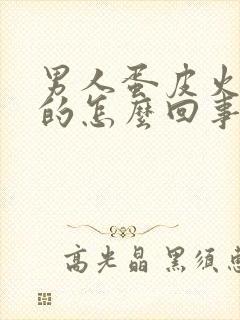 男人蛋皮火
的怎麼回事
高光晶 黑须